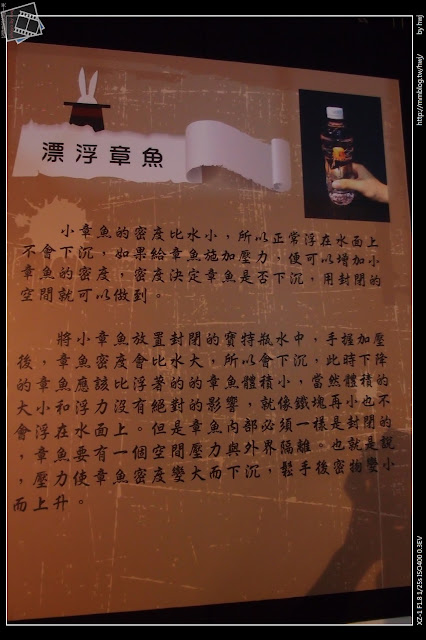 漂浮章魚
小章魚的密度比水小，所以正常浮在水面上
不會下沉，如果給章魚施加壓力，便可以增加小
章魚的密度，密度決定章魚是否下沉，用封閉的
空間就可以做到。
將小章魚放置封閉的寶特瓶水中，手握加壓
後，章魚密度會比水大，所以會下沉，此時下降
的章魚應該比浮著的的章魚體積小，當然體積的
大小和浮力沒有絕對的影響，就像鐵塊再小也不
會浮在水面上。但是章魚內部必須一樣是封閉的
，章魚要有一個空間壓力與外界隔離。也就是說
，壓力使章魚密度變大而下沉，鬆手後密物變小
而上升。
by hwj
http://mmblog.tw/hwj/
XZ-1 F1.8 1/25s ISO400 0.3EV